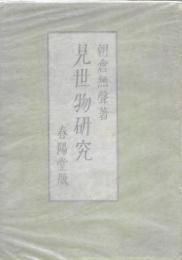 朝倉無聲著
見世物研究
春陽堂版